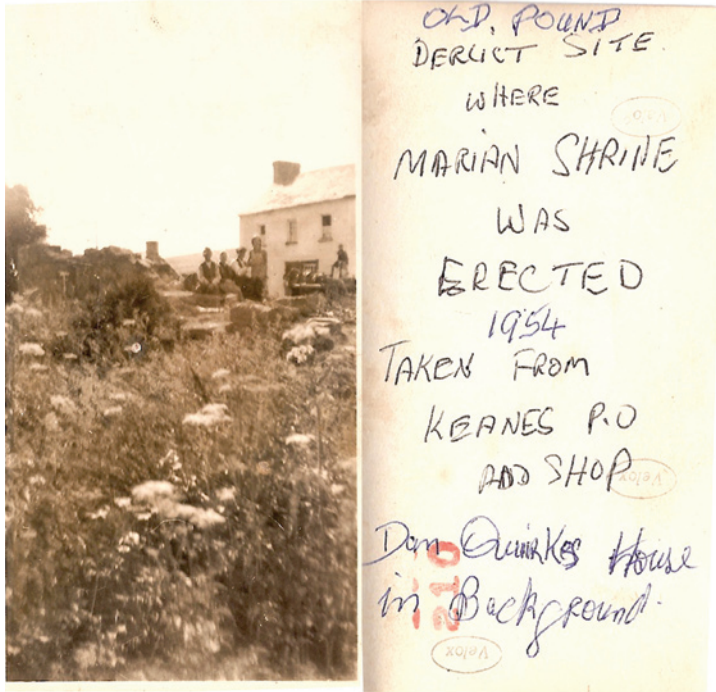 OLD. POUND
DERLICT SITE.
WHERE
Velox
MARIAN SHRINE
WAS
ERECTED
1954
TAKEN FROM
KEANES P.O
AND SHOP
Velox
Dan Quirkes House
in Background.
210
Velox